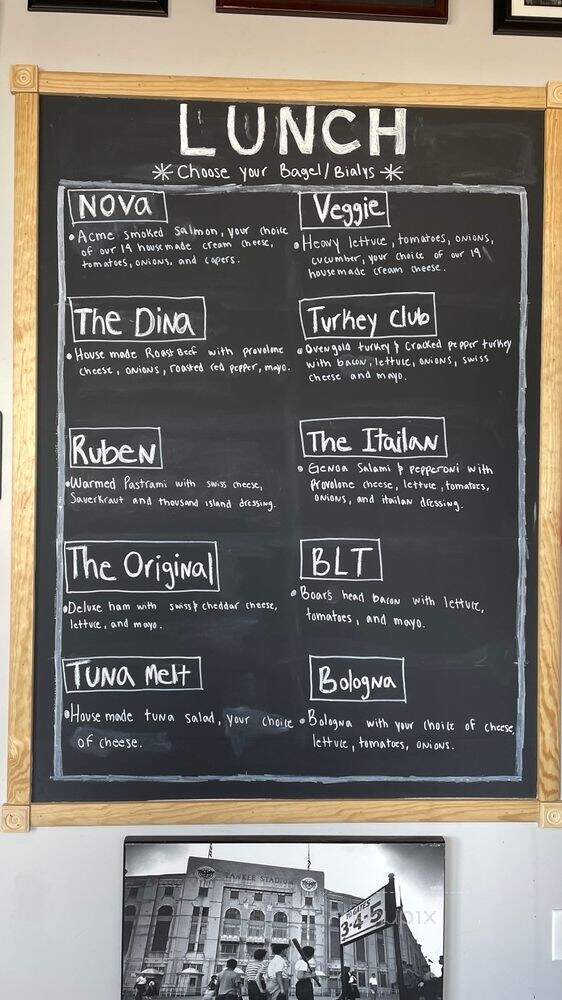 LUNCH
* Choose your Bagel/Bialys *
NOVA
• Acme smoked Salmon, your choice
of our 19 house made cream cheese,
tomatoes, onions, and capers.
Veggie
• Heavy lettuce, tomatoes, onions,
cucumber, your choice of our 19
house made cream cheese.
The Dina
• House made Roast Beef with provolone
cheese, onions, roasted red pepper, mayo.
Turkey club
• Ovengold turkey & Cracked pepper turkey
with bacon, lettuce, onions, swiss
cheese and mayo.
Ruben
• Warmed Pastrami with swiss cheese,
Sauerkraut and thousand island dressing.
The Itailan
• Genoa Salami & pepperoni with
Provolone cheese, lettuce, tomatoes,
onions, and itailan dressing.
The Original
• Deluxe ham with swiss & cheddar cheese,
lettuce, and mayo.
BLT
• Boar's head bacon with lettuce,
tomatoes, and mayo.
Tuna Melt
• House made tuna salad, your choice
of cheese.
Bologna
• Bologna with your choice of cheese,
lettuce, tomatoes, onions.
YANKEE STADIUM
GATES
3-4-5